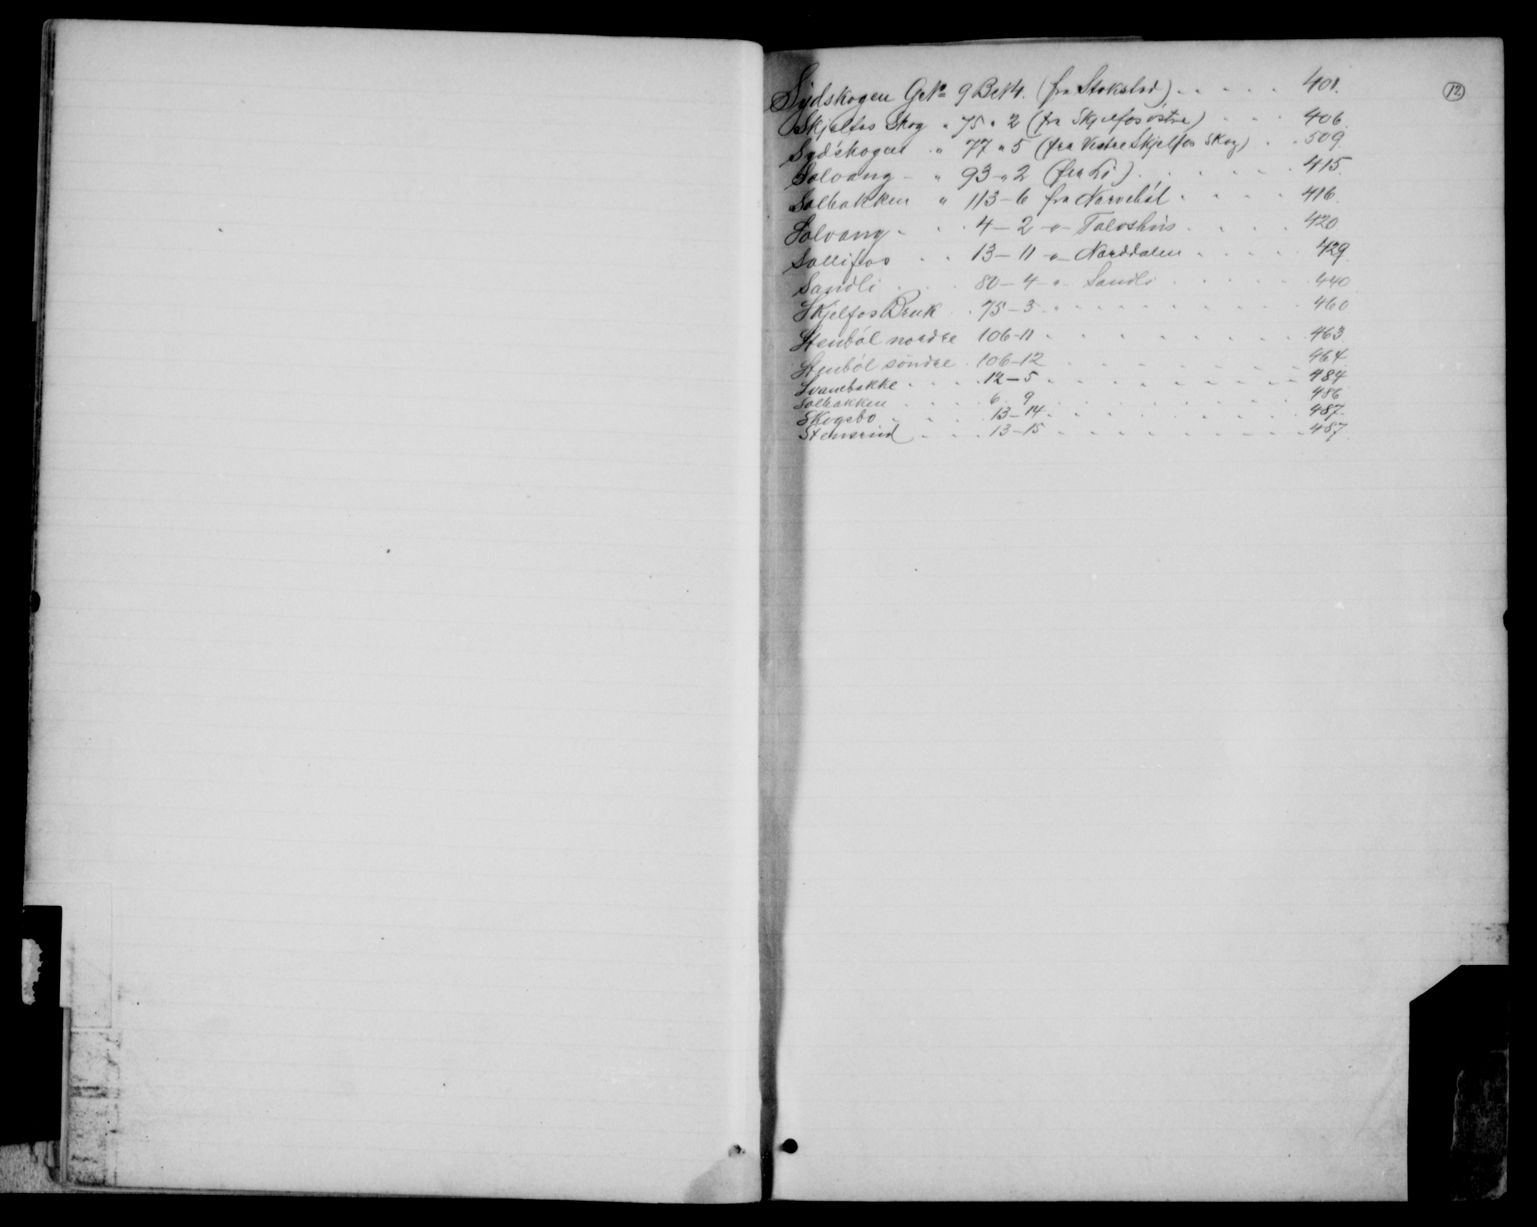 Sydskogen G.No 9 B.No 4. (fra Stokstad) . . . . . 401. (12)
Skjelfos Skog " 75 " 2 (fra Skjelfos østre) . . . 406.
Sydskogen " 77 " 5 (fra Vestre Skjelfos Skog) . . 509.
Solvang - " 93 - 2 (fra Li) . . . . . . 415.
Solbakken " 113 - 6 fra Narvebøl . . . . 416.
Solvang - . . 4 - 2 -"- . . . . 420.
Sollifos . . 13 - 11 -"- Norddalen . . . . . 429.
Sandli . . . 80 - 4 -"- Sandli . . . . . . 440
Skjelfos Bruk . 75 - 3 . . . . . . . . 460
Stenbøl nordre 106-11 . . . . . . . . 463
Stenbøl søndre . 106-12 . . . . . . . . 464
Svanebakke . . . . 12-5 . . . . . . . . 484
Solbakken . . . . 6 . 9 . . . . . . . . 486
Skogsbo . . . . 13-14 . . . . . . . . 487.
Stensrud . . . 13-15 . . . . . . . . 487.